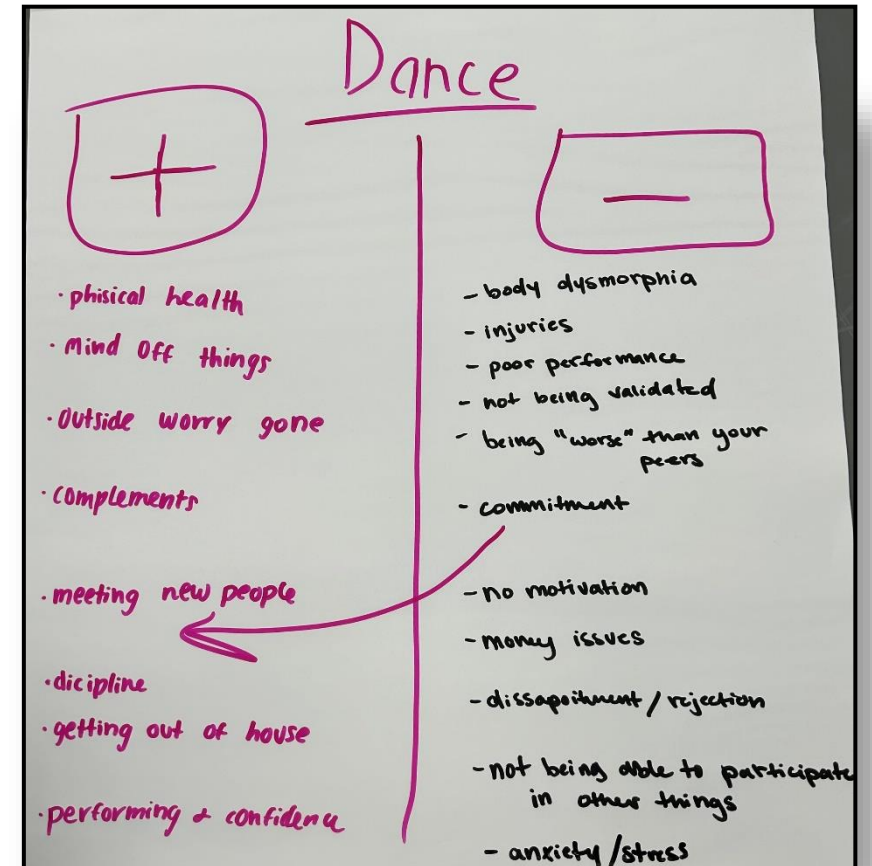 Dance
+
· phisical health
· Mind Off things
· Outside worry gone
· complements
· meeting new people
· dicipline
· getting out of house
· performing & confidence
—
- body dysmorphia
- injuries
- poor performance
- not being validated
- being "worse" than your
peers
- commitment
- no motivation
- money issues
- dissapoitment / rejection
- not being able to participate
in other things
- anxiety / stress